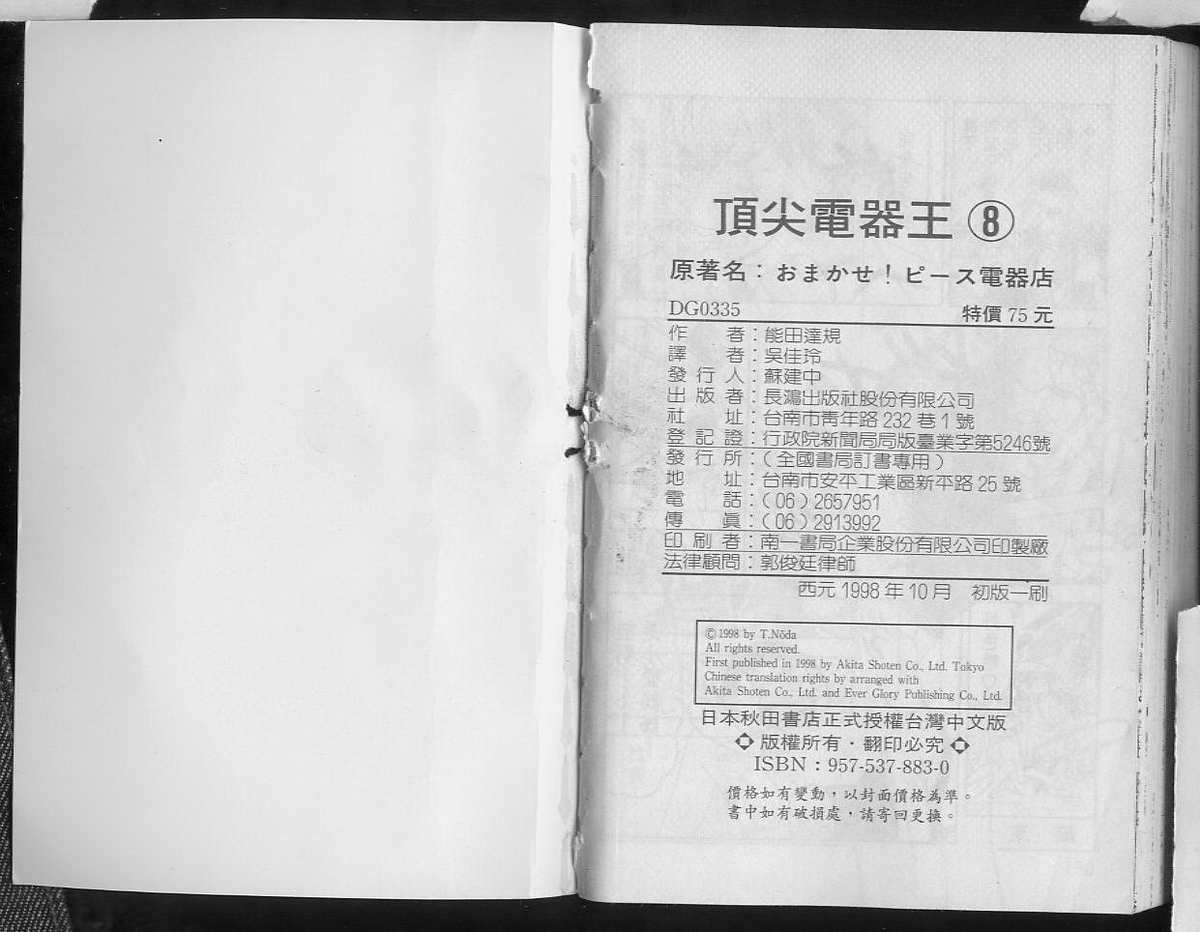 頂尖電器王⑧
原著名：おまかせ！ピース電器店
DG0335 特價 75 元
作者：能田達規
譯者：吳佳玲
發行人：蘇建中
出版者：長鴻出版社股份有限公司
社址：台南市青年路 232 巷 1 號
登記證：行政院新聞局局版臺業字第5246號
發行所：（全國書局訂書專用）
地址：台南市安平工業區新平路 25 號
電話：（06）2657951
傳眞：（06）2913992
印刷者：南一書局企業股份有限公司印製廠
法律顧問：郭俊廷律師
西元 1998 年 10 月 初版一刷
©1998 by T.Nōda
All rights reserved.
First published in 1998 by Akita Shoten Co., Ltd. Tokyo
Chinese translation rights by arranged with
Akita Shoten Co., Ltd. and Ever Glory Publishing Co., Ltd.
日本秋田書店正式授權台灣中文版
版權所有・翻印必究
ISBN：957-537-883-0
價格如有變動，以封面價格為準。
書中如有破損處，請寄回更換。